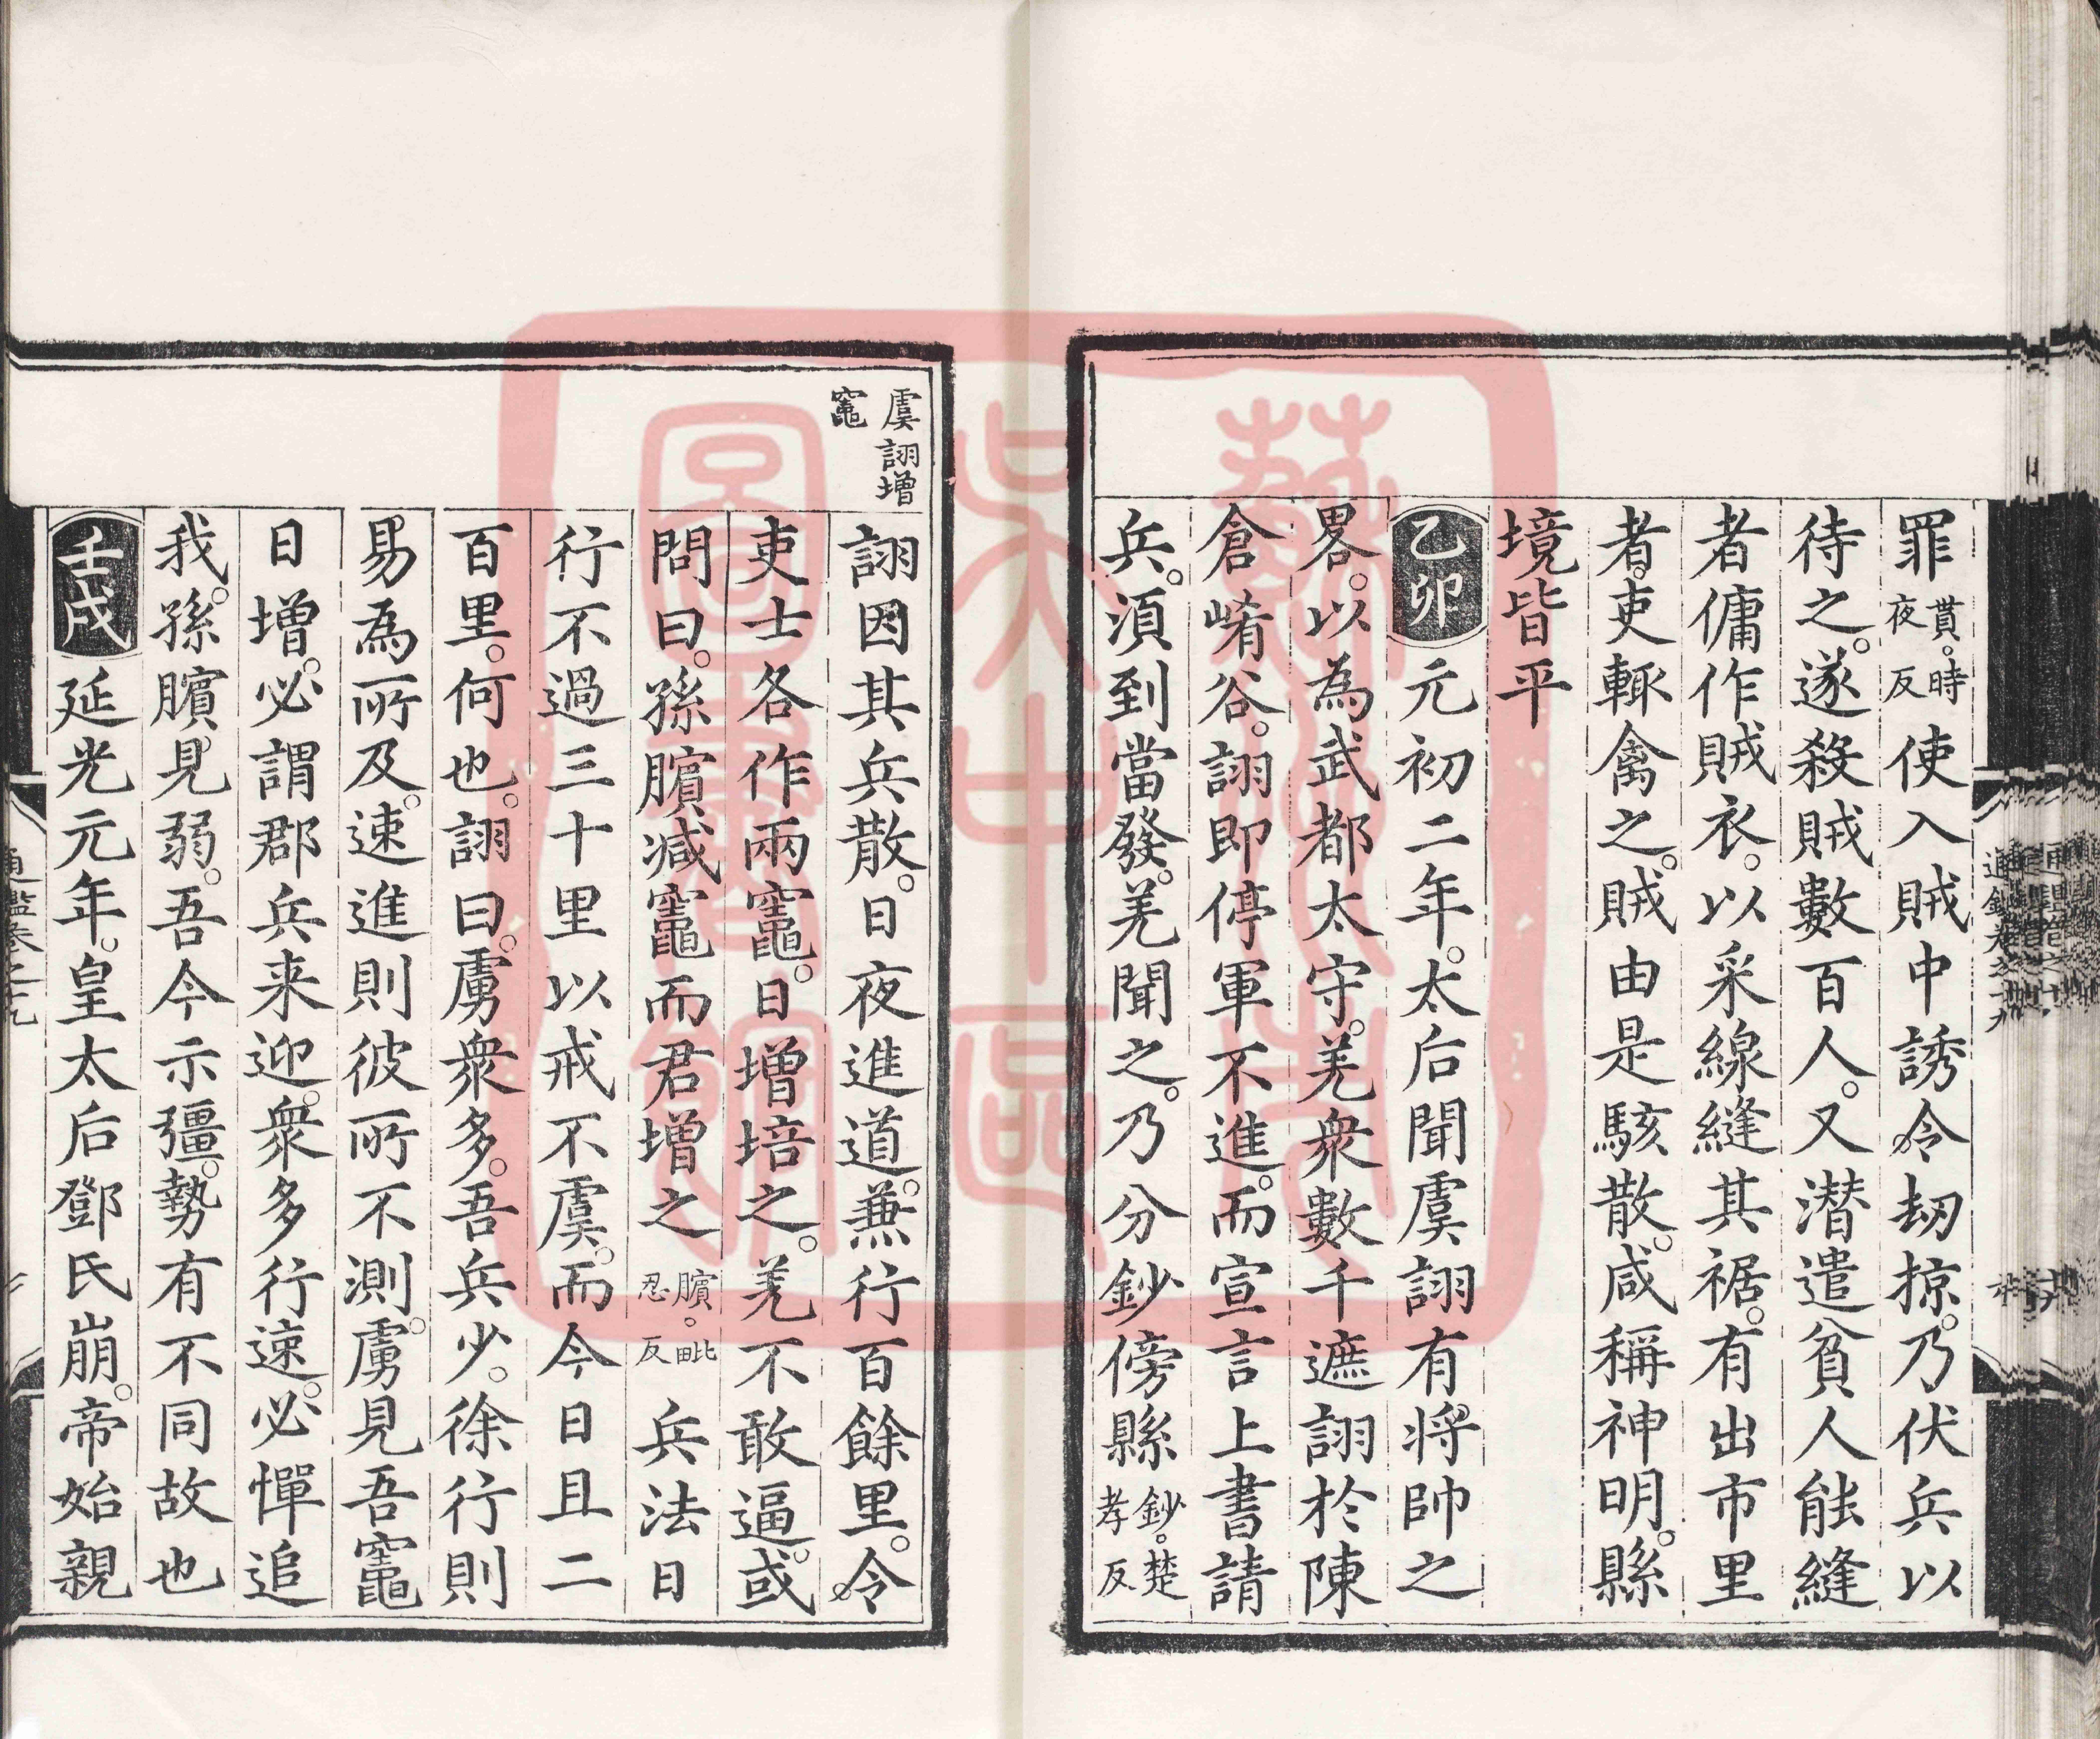 罪貰。時夜反使入賊中誘令劫掠。乃伏兵以
待之。遂殺賊數百人。又潜遣貧人能縫
者傭作賊衣。以采線縫其裾。有出市里
者。吏輙禽之。賊由是駭散。咸稱神明。縣
境皆平
乙卯元初二年。太后聞虞詡有将帥之
畧。以為武都太守。羌衆數千遮詡於陳
倉崤谷。詡即停軍不進。而宣言上書請
兵。須到當發。羌聞之。乃分鈔傍縣鈔。楚孝反
虞詡増
竈
詡因其兵散。日夜進道。兼行百餘里。令
吏士各作兩竈。日増培之。羌不敢逼。或
問曰。孫臏减竈而君増之臏。毗忍反兵法日
行不過三十里以戒不虞。而今日且二
百里。何也。詡曰。虜衆多。吾兵少。徐行則
易為所及。速進則彼所不測。虜見吾竈
日増。必謂郡兵来迎。衆多行速。必憚追
我。孫臏見弱。吾今示彊。勢有不同故也
壬戌延光元年。皇太后鄧氏崩。帝始親
通鑑卷之十九
蘇州市
吳中區
圖書館